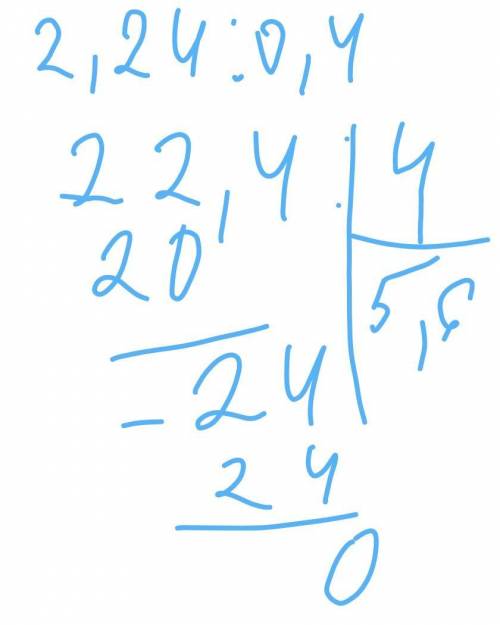 2,24:0,4
22,4: 4
20 5,6
-24
24
0